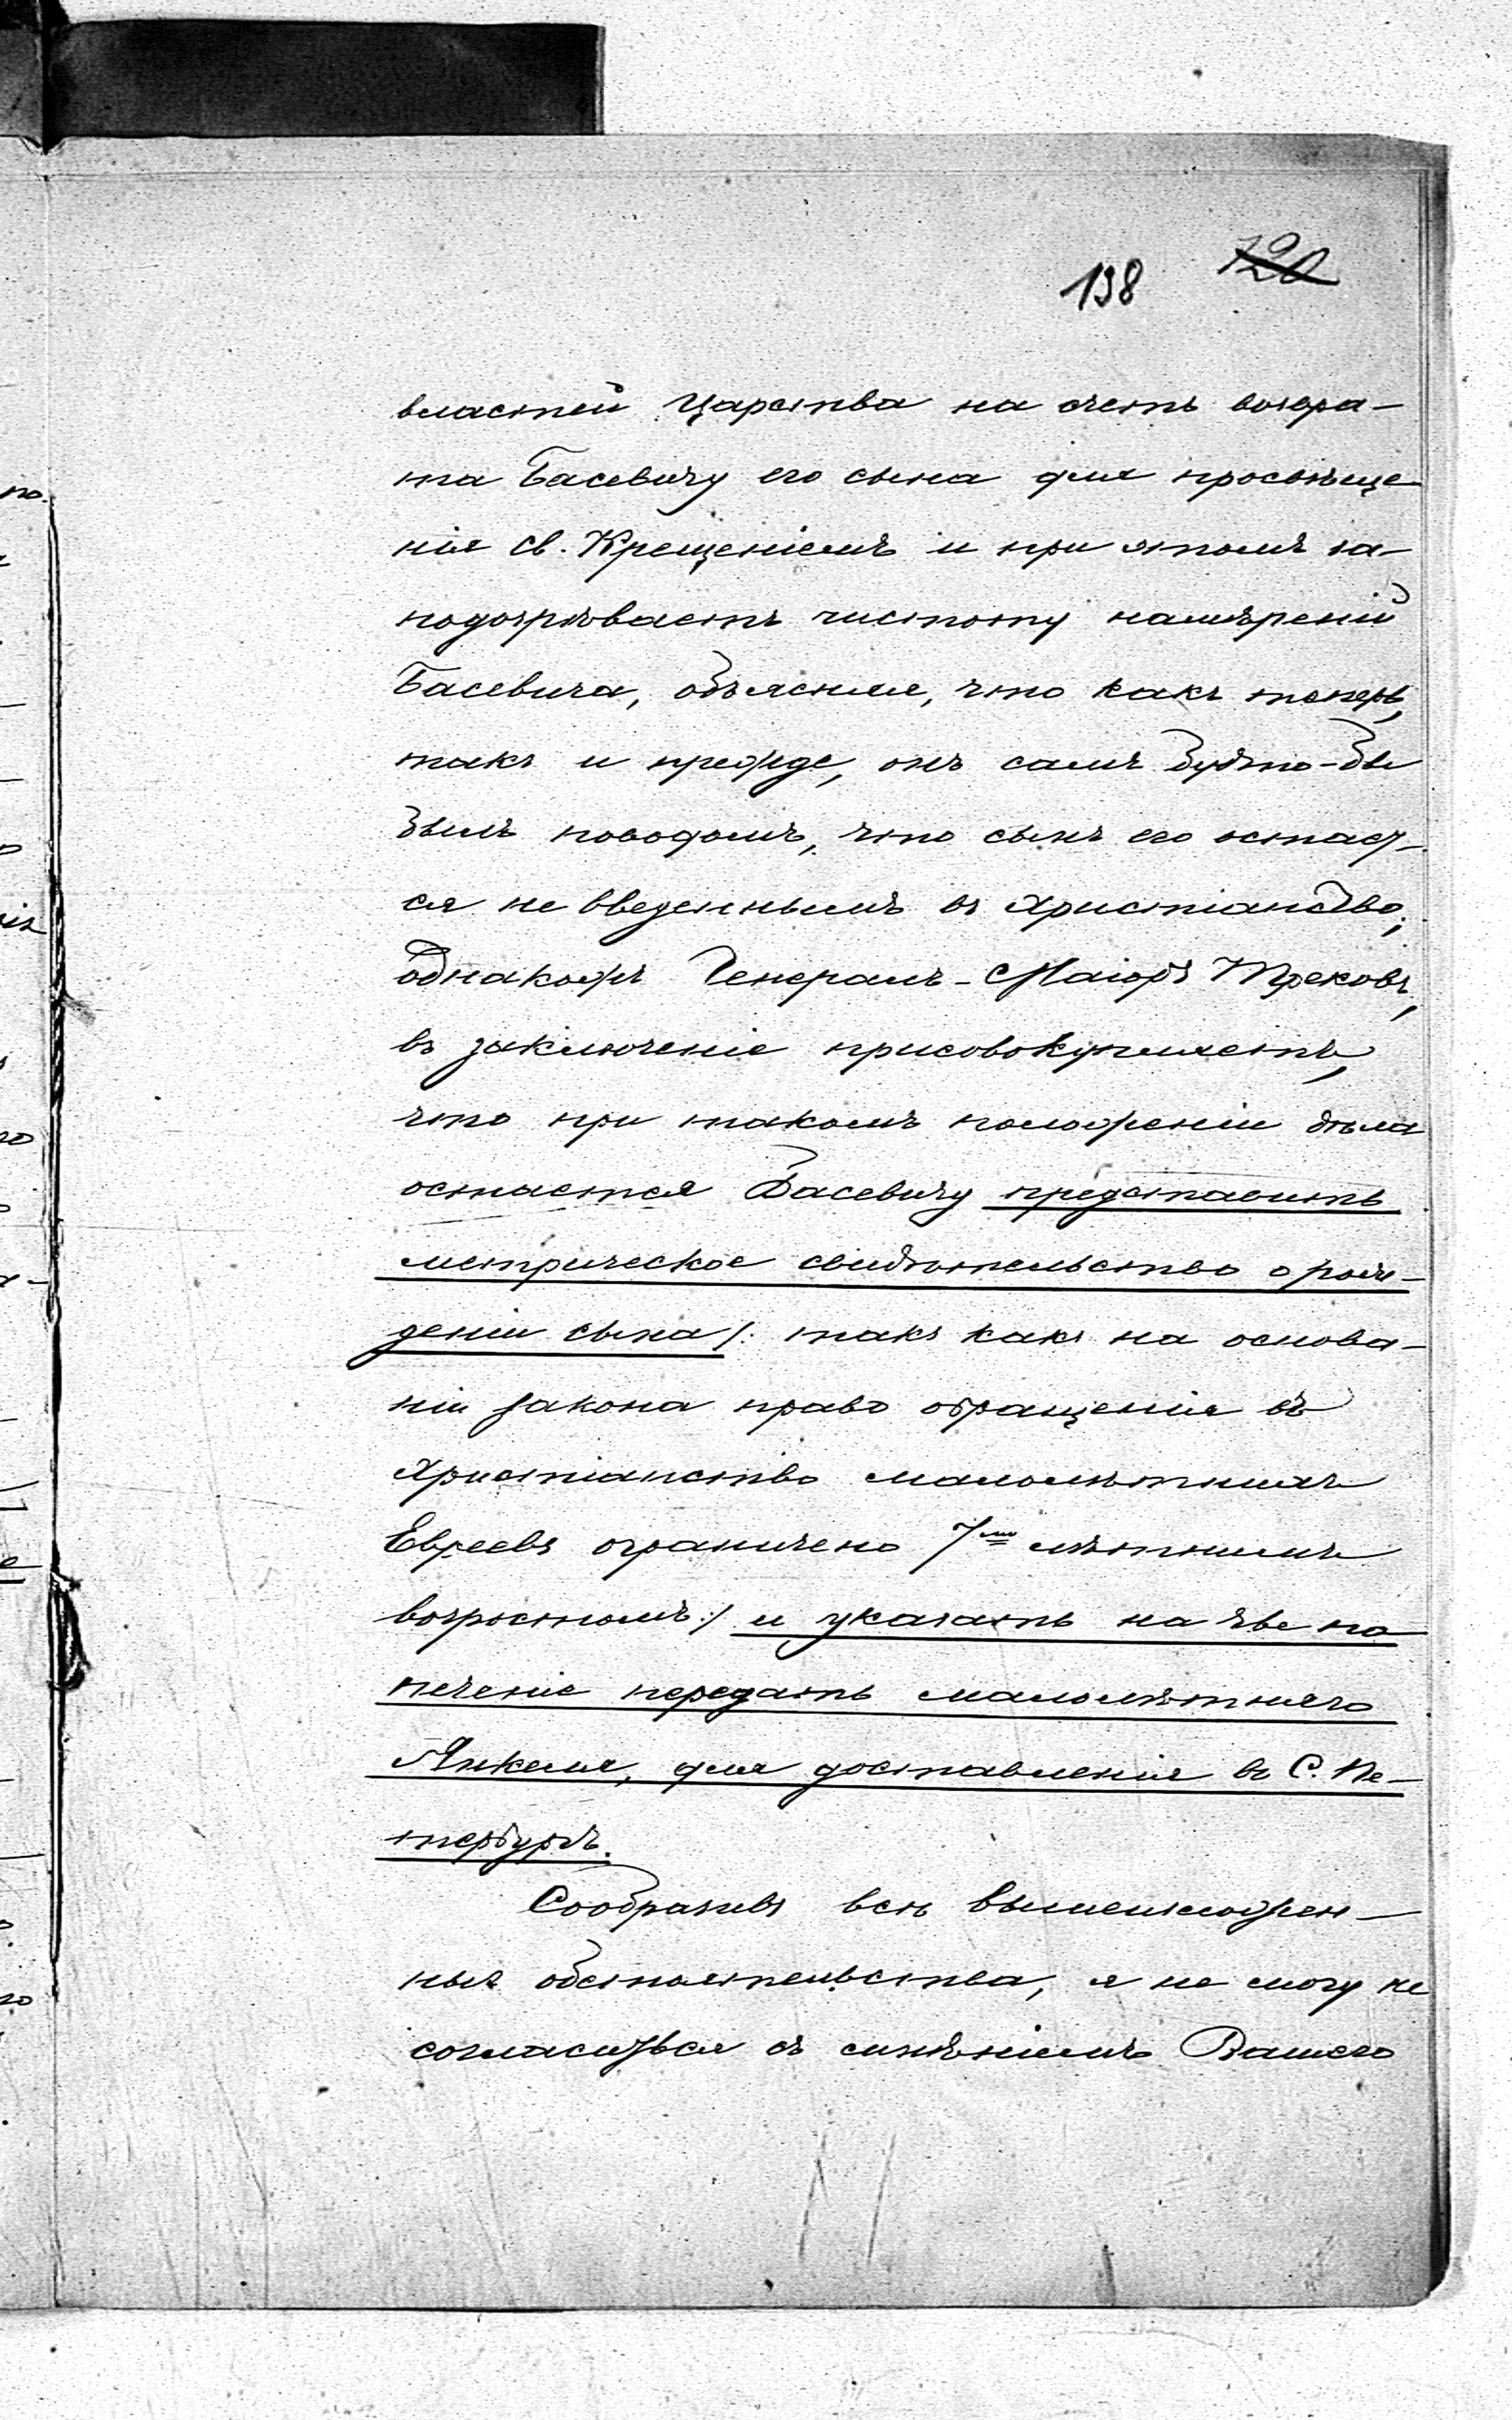 138 120
властей Царства на счетъ возвра-
та Басевичу его сына для просвѣще-
нія св. Крещеніемъ и при этомъ за-
подозрѣваетъ чистоту намѣреній
Басевича, объясняя, что какъ теперь,
такъ и прежде, онъ самъ будто-бы
былъ поводомъ, что сынъ его остает-
ся не введеннымъ въ Христіанство;
однакожъ Генералъ-Маіоръ Треповъ,
въ заключеніе присовокупляетъ,
что при такомъ положеніи дѣла
остается Басевичу представить
метрическое свидѣтельство о рож-
деніи сына /: такъ какъ на основа-
ніи закона право обращенія въ
Христіанство малолѣтнихъ
Евреевъ ограничено 7ми лѣтнимъ
возростомъ :/ и указать на чье по
печеніе передать малолѣтняго
Янкеля, для доставленія въ С. Пе-
тербургъ.
Сообразивъ всѣ вышеизложен-
ныя обстоятельства, я не могу не
согласиться съ мнѣніемъ Вашего